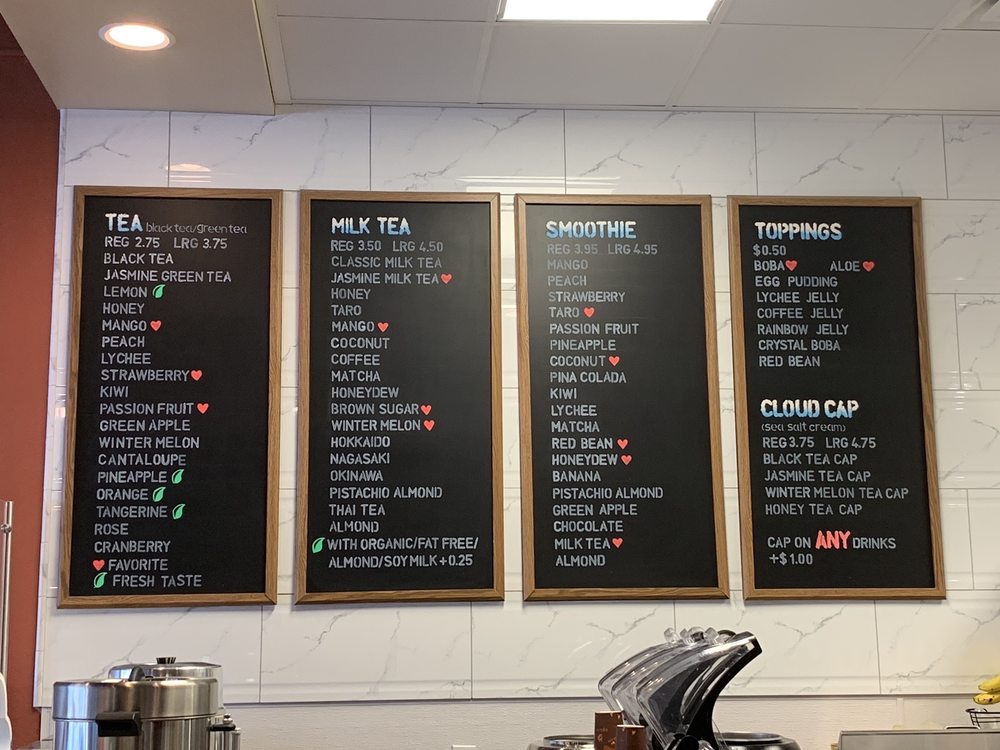 TEA black tea/green tea
REG 2.75 LRG 3.75
BLACK TEA
JASMINE GREEN TEA
LEMON
HONEY
MANGO
PEACH
LYCHEE
STRAWBERRY
KIWI
PASSION FRUIT
GREEN APPLE
WINTER MELON
CANTALOUPE
PINEAPPLE
ORANGE
TANGERINE
ROSE
CRANBERRY
FAVORITE
FRESH TASTE
MILK TEA
REG 3.50 LRG 4.50
CLASSIC MILK TEA
JASMINE MILK TEA
HONEY
TARO
MANGO
COCONUT
COFFEE
MATCHA
HONEYDEW
BROWN SUGAR
WINTER MELON
HOKKAIDO
NAGASAKI
OKINAWA
PISTACHIO ALMOND
THAI TEA
ALMOND
WITH ORGANIC/FAT FREE/
ALMOND/SOY MILK +0.25
SMOOTHIE
REG 3.95 LRG 4.95
MANGO
PEACH
STRAWBERRY
TARO
PASSION FRUIT
PINEAPPLE
COCONUT
PINA COLADA
KIWI
LYCHEE
MATCHA
RED BEAN
HONEYDEW
BANANA
PISTACHIO ALMOND
GREEN APPLE
CHOCOLATE
MILK TEA
ALMOND
TOPPINGS
$0.50
BOBA ALOE
EGG PUDDING
LYCHEE JELLY
COFFEE JELLY
RAINBOW JELLY
CRYSTAL BOBA
RED BEAN
CLOUD CAP
(sea salt cream)
REG 3.75 LRG 4.75
BLACK TEA CAP
JASMINE TEA CAP
WINTER MELON TEA CAP
HONEY TEA CAP
CAP ON ANY DRINKS
+$1.00